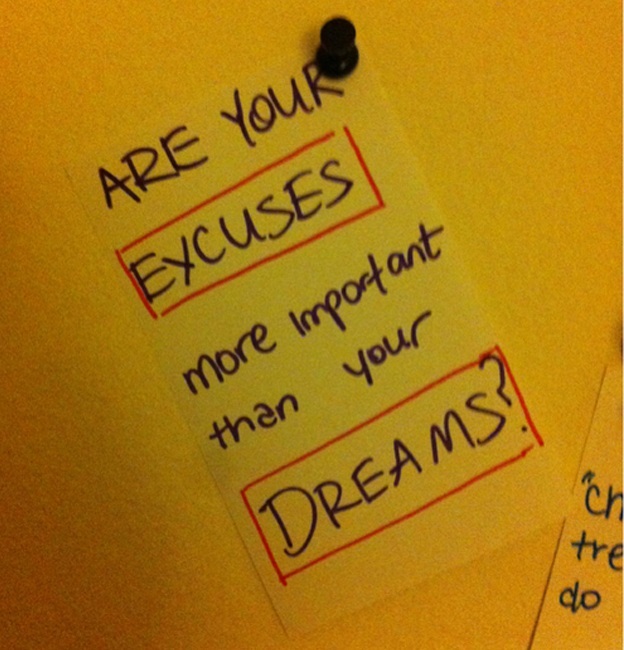 ARE YOUR
EXCUSES
more important
than your
DREAMS?
"Ch
tre
do